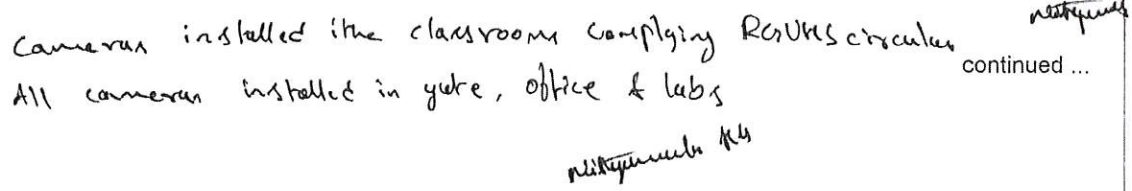 Cameras installed ithe classrooms complying RGUHS circular
continued ...
All cameras installed in gate, office & labs